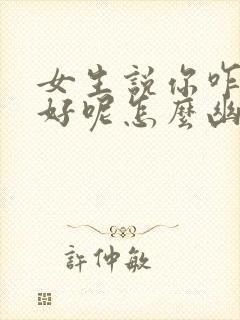 女生說你咋
好呢怎麼幽
許仲敏